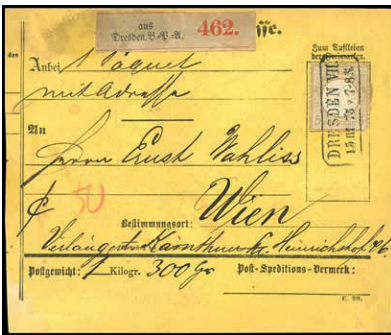 aus
Dresden.B.-P.-A. 462.
Zum Aufkleben
der Freimarken.
des
Anbei 1 Paquet
mit Adresse
DRESDEN VII.
15 III 73 7-8
An
Herrn Ernst Wahliss
50
Bestimmungsort: Wien
Verlängerte Kärnthner Heinrichshof
Postgewicht: 1 Kilogr. 300 Gr
Post-Speditions-Vermerk:
C. 28.